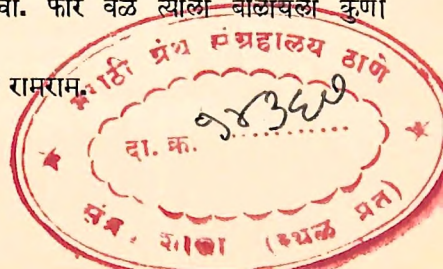 वा. फार वेळ त्याला बोलायला कुणी
रामराम.
मराठी ग्रंथ संग्रहालय ठाणे
दा. क्र.
शाखा (स्थळ प्रत)